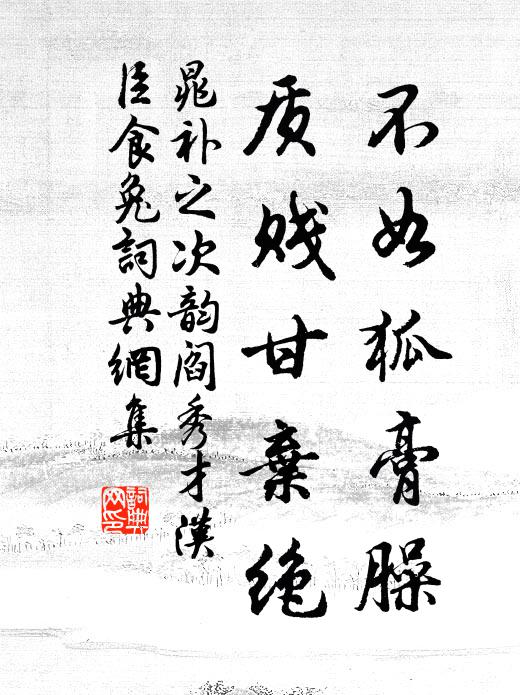 不如狐膏臊
质贱甘弃绝
晁补之次韵阎秀才汉
臣食兔詞典網集
詞典网印